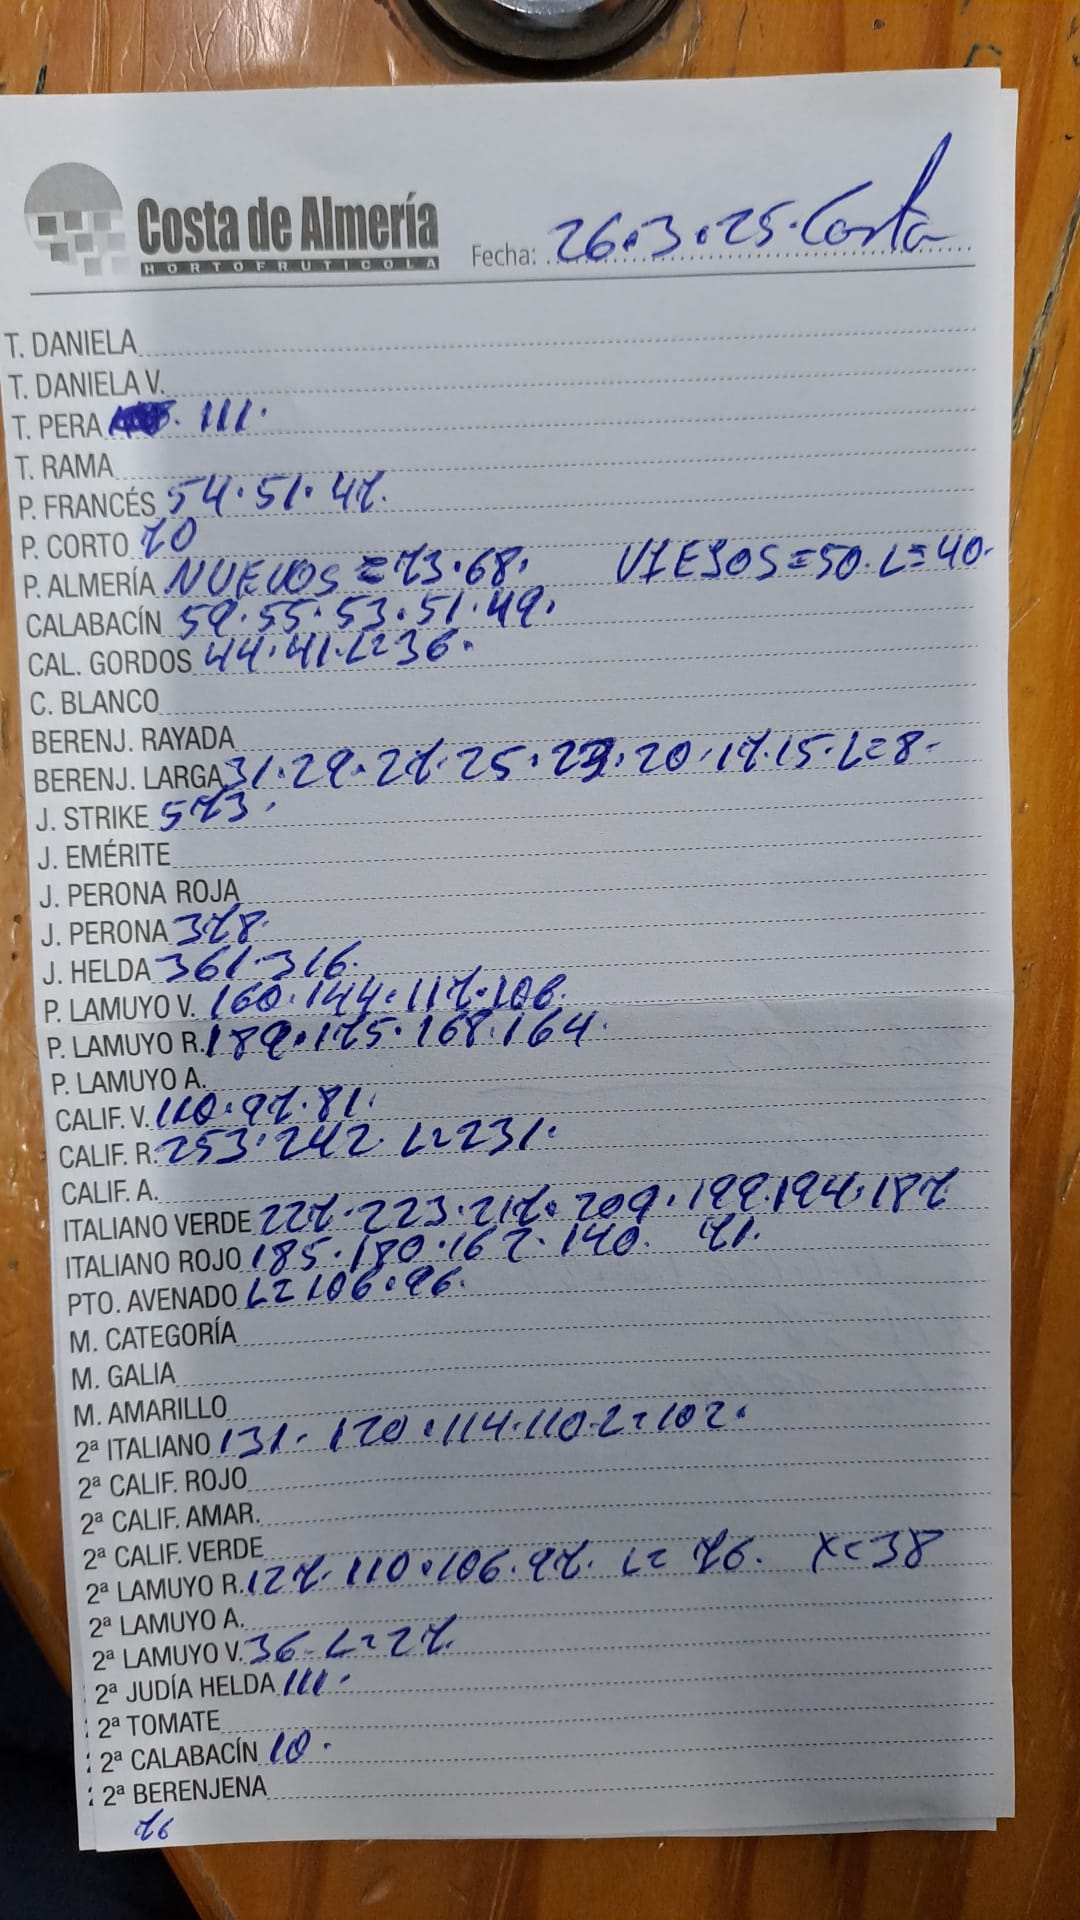 Costa de Almería
HORTOFRUTICOLA
Fecha: 26.3.25. Costa
T. DANIELA
T. DANIELA V.
T. PERA 111.
T. RAMA
P. FRANCÉS 54.51.47.
P. CORTO 70
P. ALMERÍA NUEVOS = 73.68. VIEJOS = 50. L = 40.
CALABACÍN 59.55.53.51.49.
CAL. GORDOS 44.41.L=36.
C. BLANCO
BERENJ. RAYADA
BERENJ. LARGA 31.29.27.25.23.20.17.15.L=8-
J. STRIKE 573.
J. EMÉRITE
J. PERONA ROJA
J. PERONA 378.
J. HELDA 361.316.
P. LAMUYO V. 160.144.117.106.
P. LAMUYO R. 189.175.168.164.
P. LAMUYO A.
CALIF. V. 110.97.81.
CALIF. R. 253.242. L=231.
CALIF. A.
ITALIANO VERDE 227.223.217.209.199.194.187
ITALIANO ROJO 185.180.167.140. 71.
PTO. AVENADO L=106.96.
M. CATEGORÍA
M. GALIA
M. AMARILLO
2ª ITALIANO 131. 120.114.110.L=102.
2ª CALIF. ROJO
2ª CALIF. AMAR.
2ª CALIF. VERDE
2ª LAMUYO R. 127.110.106.97. L= 76. X=38
2ª LAMUYO A.
2ª LAMUYO V. 36. L=27.
2ª JUDÍA HELDA 111.
2ª TOMATE
2ª CALABACÍN 10.
2ª BERENJENA
76